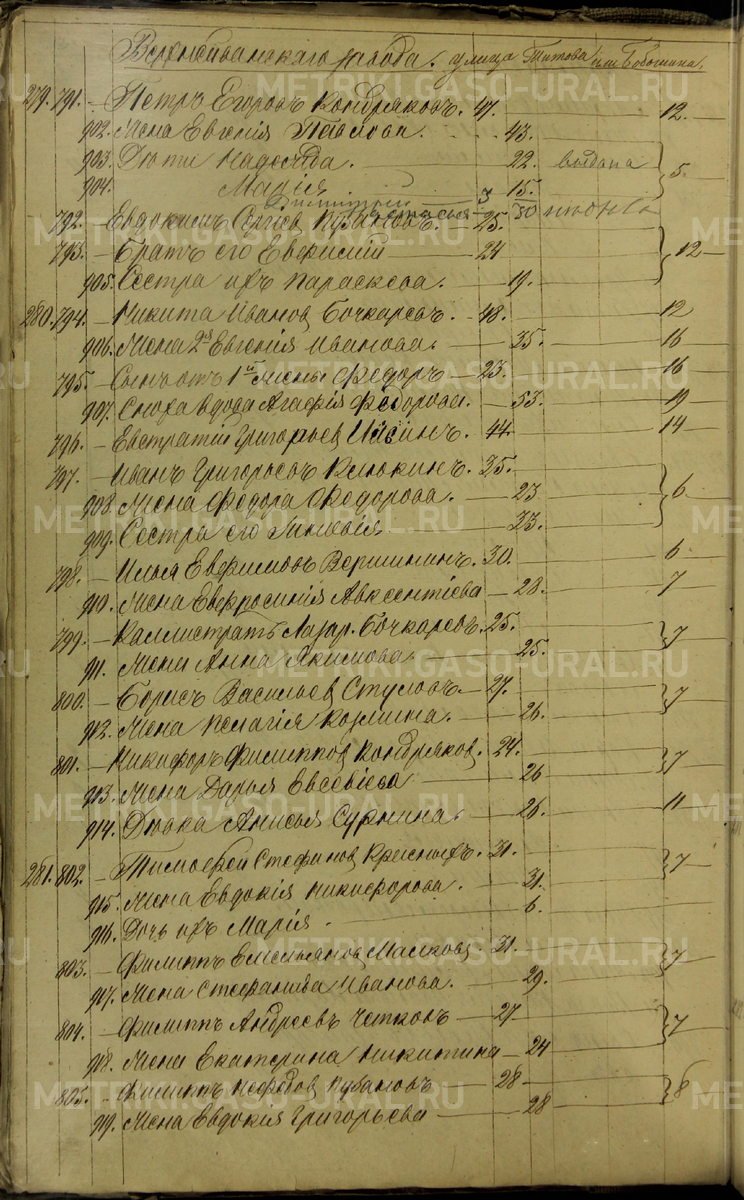 Верхнейвинскаго завода. улица Титова или Бобошина.
279. 791. — Петръ Егоровъ Кондряковъ. 47. 12.
902. Жена Евгенія Павлова. 43.
903. Дѣти Надежда. 22. выдана 5.
904. Марія 15.
Дмитрий 3
792. Евдокимъ Сергіев Кубановъ. 25.
793. — Братъ его Евфимій — 24 12
905. Сестра ихъ Параскева. — 19.
280. 794. — Никита Иванов Бочкаревъ. — 48. 12
906. Жена 2я Евгенія Иванова. — 35. 16
795. — Сынъ отъ 1ой жены Федоръ — 23 16
907. Сноха вдова Агафія Федорова. — 53. 19
796. — Евстратій Григорьев Ильинъ. — 44. 14
797. — Иванъ Григорьевъ Клюкинъ. 35.
908. Жена Федора Федорова. — 23 6
909. Сестра его — 33.
798. — Илья Евфимовъ Вершининъ. 30. 6
910. Жена Евфросинія Авксентіева — 28. 7
799. — Каллистратъ Лазар. Бочкаревъ. 25. 7
911. Жена Анна Якимова 25.
800. — Борисъ Васильев Стуловъ. — 27. 7
912. Жена Пелагія Козмина. — 26.
801. — Никифоръ Филиппов Кондряков. 24. 7
913. Жена Дарья Евсевіева — 26
914. Дѣвка Анисья Сурнина. — 26. 11
281. 802. — Тимофей Стефанов Красныхъ. 31. 7
915. Жена Евдокія Никифорова. — 31.
916. Дочь ихъ Марія — 6.
803. — Филиппъ Емельянов Малков. 31. 7
917. Жена Стефанида Иванова. — 29.
804. — Филиппъ Андреевъ Четковъ — 27 7
918. Жена Екатерина Никитина — 24
805. — Филиппъ Нефедов Кубановъ — 28 8
919. Жена Евдокія Григорьева — 28
METRIKI.GASO-URAL.RU